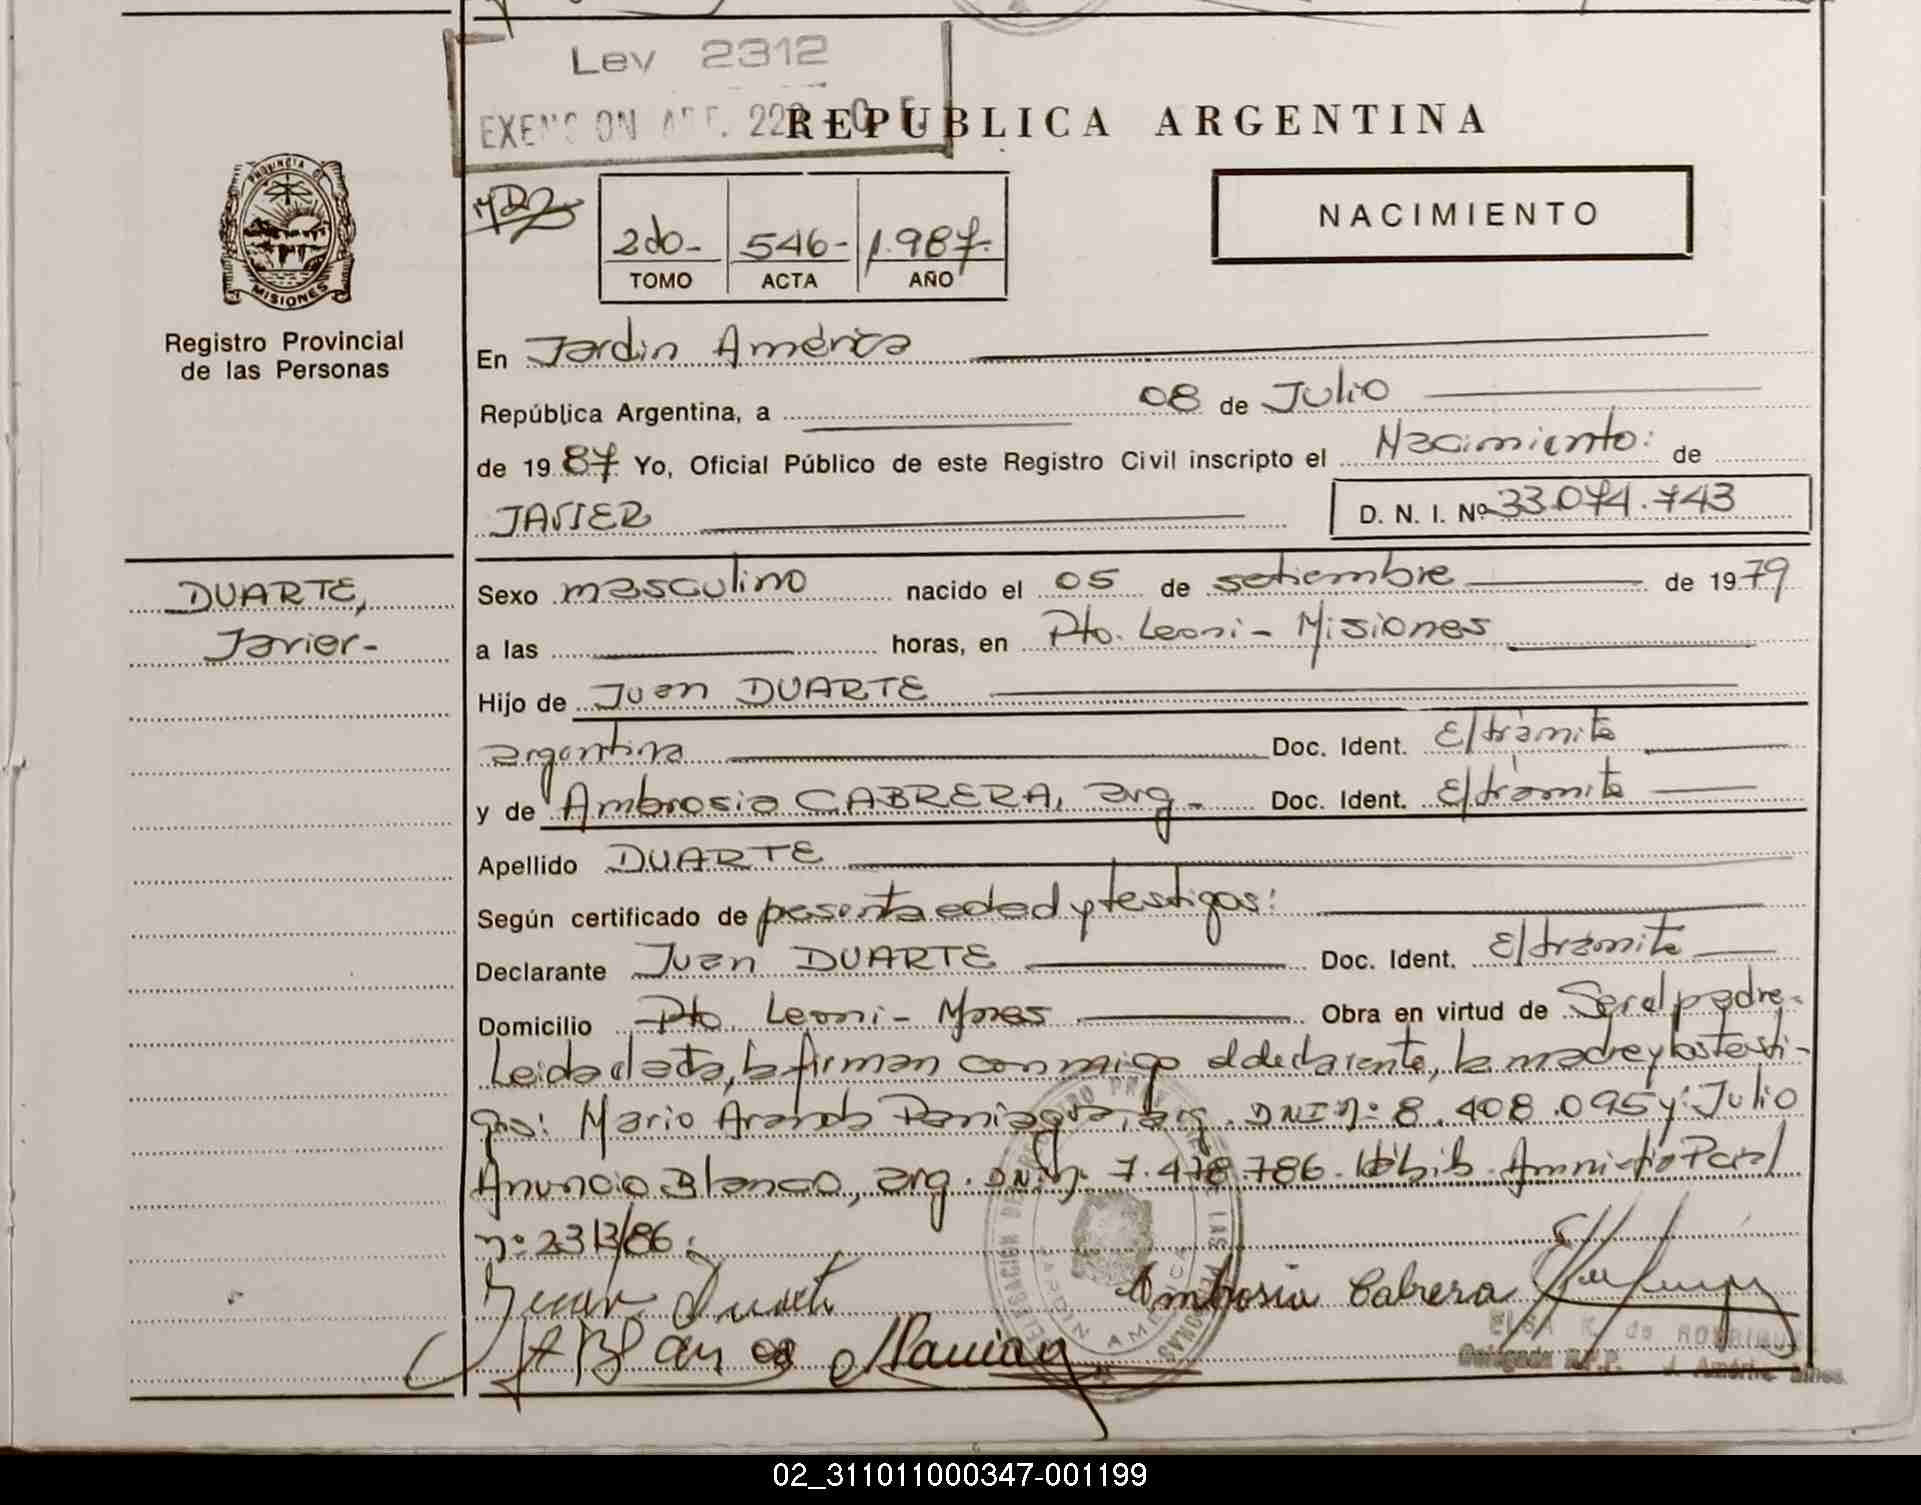 Ley 2312
EXENCION ART. 229
REPUBLICA ARGENTINA
NACIMIENTO
2do- 546- 1.987.
TOMO ACTA AÑO
PROVINCIA DE
MISIONES
Registro Provincial
de las Personas
En Jardin América
República Argentina, a 08 de Julio
de 1987 Yo, Oficial Público de este Registro Civil inscripto el Nacimiento: de
JAVIER D. N. I. Nº 33.074.743
DUARTE,
Javier-
Sexo masculino nacido el 05 de setiembre de 1979
a las horas, en Pto. Leoni - Misiones
Hijo de Juan DUARTE
argentina Doc. Ident. E/trámite
y de Ambrosia CABRERA, arg- Doc. Ident. E/trámite
Apellido DUARTE
Según certificado de presenta edad y testigos:
Declarante Juan DUARTE Doc. Ident. E/trámite
Domicilio Pto. Leoni - Mnes Obra en virtud de Ser el padre.
Leida el acta, la firman conmigo el declarante, la madre y los testi-
gos: Mario Aranda Paniagua, arg. DNI nº 8.408.095 y: Julio
Anuncio Blanco, arg. DNI nº 7.478.786. 
nº 2313/86.
Juan Duarte
Ambrosia Cabrera
JABlanco
MPaniag
ELSA K. de
Delegada R.P.P. J. América Mnes.
JARDIN AMERICA
02_311011000347-001199